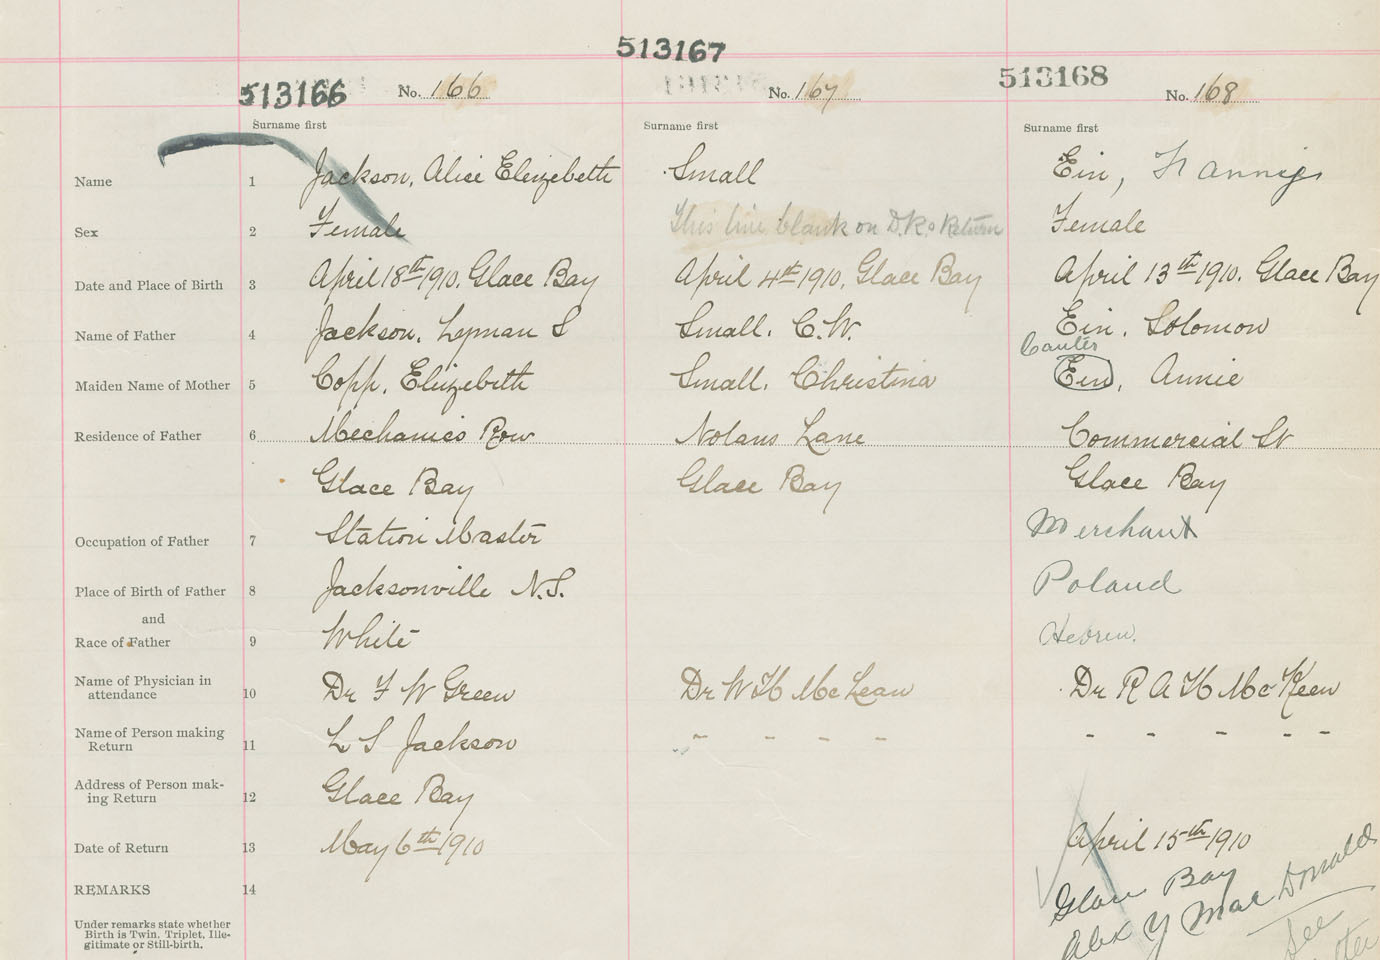 513166 No. 166 513167 No. 167 513168 No. 168
Surname first Surname first Surname first
Name 1 Jackson, Alice Elizebeth Small Ein, Fannie
Sex 2 Female This line blank on D.R.s Return Female
Date and Place of Birth 3 April 18th 1910. Glace Bay April 4th 1910. Glace Bay April 13th 1910. Glace Bay
Name of Father 4 Jackson, Lyman S Small. C.W. Ein. Solomon
Canter
Maiden Name of Mother 5 Copp, Elizebeth Small. Christina Ein, Annie
Residence of Father 6 Mechanics Row Nolans Lane Commercial St
Glace Bay Glace Bay Glace Bay
Occupation of Father 7 Station Master Merchant
Place of Birth of Father 8 Jacksonville N.S. Poland
and
Race of Father 9 White Hebrew.
Name of Physician in
attendance 10 Dr F W Green Dr W H McLean Dr R A H McKeen
Name of Person making
Return 11 L S Jackson - - - - - - - - -
Address of Person mak-
ing Return 12 Glace Bay
Date of Return 13 May 6th 1910 April 15th 1910
REMARKS 14 Glace Bay
Alex Y MacDonald
Under remarks state whether
Birth is Twin, Triplet, Ille-
gitimate or Still-birth.
See